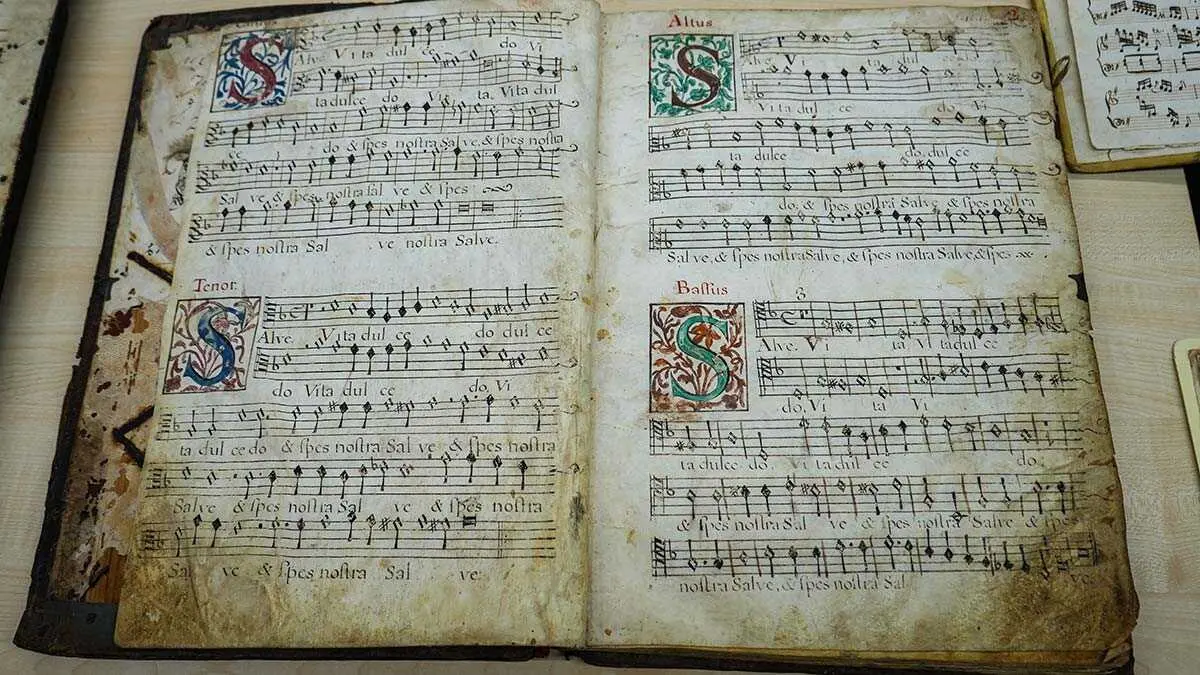 S
Alve. Vi ta dul ce do Vi
ta dulce do Vi ta. Vita dul
ce do & ſpes noſtra Sal ve, & ſpes noſtra
Sal ve & ſpes noſtra ſal ve & ſpes
& ſpes noſtra Sal ve noſtra Salve.
Tenor.
S
Alve. Vita dul ce do dul ce
do Vita dul ce do. Vi
ta dul ce do & ſpes noſtra Sal ve & ſpes noſtra
Salve & ſpes noſtra Sal ve & ſpes noſtra
Sal ve & ſpes noſtra Sal ve.
Altus
S
Alve. Vi ta dul ce do
Vi ta dul ce do. Vi
ta dulce do. dul ce
do. & ſpes noſtra Salve & ſpes noſtra
Sal ve, & ſpes noſtra Salve, & ſpes noſtra Salve, & ſpes
Baſſus
S
8
Alve. Vi ta Vi ta dul ce
do, Vi ta Vi
ta dulce do. Vi ta dul ce do.
& ſpes noſtra Sal ve & ſpes noſtra Salve & ſpes
noſtra Salve, & ſpes noſtra Sal ve.